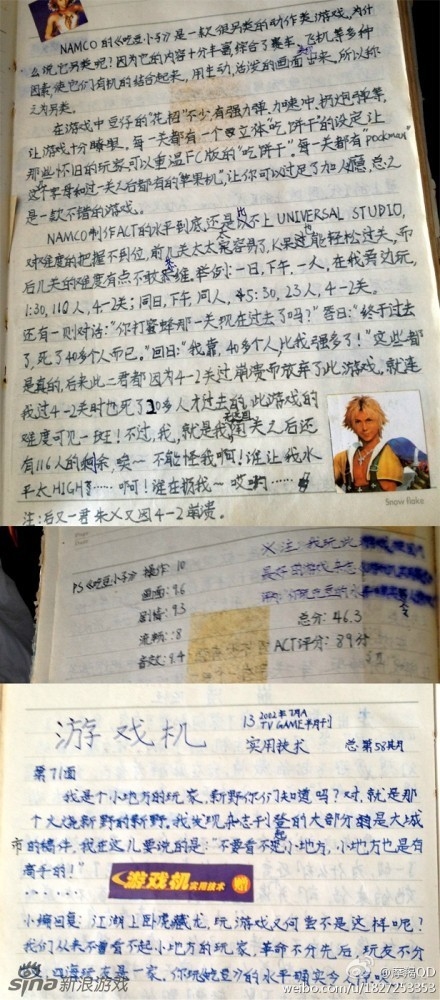 NAMCO的《吃豆小子》是一款很另类的动作类游戏,为什
么说它另类呢?因为它的内容十分丰富,综合了赛车、飞机等多种
因素,使它们有机的结合起来,用生动,活泼的画面出来,所以称
之为另类。
在游戏中豆仔的"花招"不少,有强力弹,加速冲,扔炮弹等,
让游戏十分耐玩,每一关都有一个立体"吃饼干"的设定,让
那些怀旧的玩家可以重温FC版的"吃饼干"。每一关都有"packman"
这字母和过一关之后都有的"苹果机",让你可以过足了加人瘾,总之
是一款不错的游戏。
NAMCO制作ACT的水平到底还是比不上UNIVERSAL STUDIO,
对难度的把握不到位,前几关太太容易了,K果过能轻松过关,而
后几关的难度有点不敢恭维。举例:一日,下午,一人,在我旁边玩,
1:30,110人,4-2关;同日,下午,同人,5:30,23人,4-2关。
还有一则对话:"你打蜜蜂那一关现在过去了吗?"答曰:"终于过去
了,死了40多个人而已。"回曰:"我靠,40多个人,比我强多了!"这些都
是真的,后来此二君都因为4-2关过崩溃而放弃了此游戏,就连
我过4-2关时也死了10多人才过去的,此游戏的
难度可见一斑!不过,我,就是我,通关之后还
有116人的剩余,唉~不能怪我啊!谁让我水
平太HIGH了……啊!谁在扔我~哎哟……
注:后又一君朱×又因4-2崩溃。
Snow flake
PS《吃豆小子》 操作:10
画面:9.6
剧情:9.3
流畅:8
音效:9.4
又注:我玩此
总分:46.3
ACT评分:89分
游戏机
13 2002年7月A
TV GAME半月刊
实用技术
总第58期
第71面
我是个小地方的玩家,新野你们知道吗?对,就是那
个火烧新野的新野。我发现杂志刊登的大部分都是大城
市的稿件,我在这儿要说的是:"不要看不起小地方,小地方也是有
高手的!"
……
游戏机实用技术
小编回复:江湖上卧虎藏龙,玩游戏又何尝不是这样呢?
我们从来不曾看不起小地方的玩家,革命不分先后,玩友不分
四海玩友是一家。你玩吃豆》的水平确实令
sina新浪游戏
weibo.com/u/1827253353